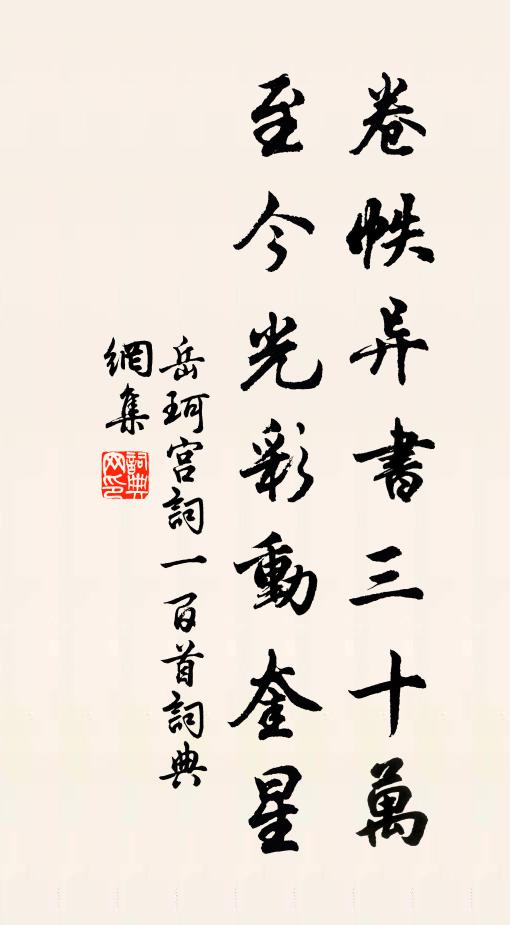 卷帙异書三十萬
至今光彩動奎星
岳珂宫詞一百首詞典
網集
詞典
网印